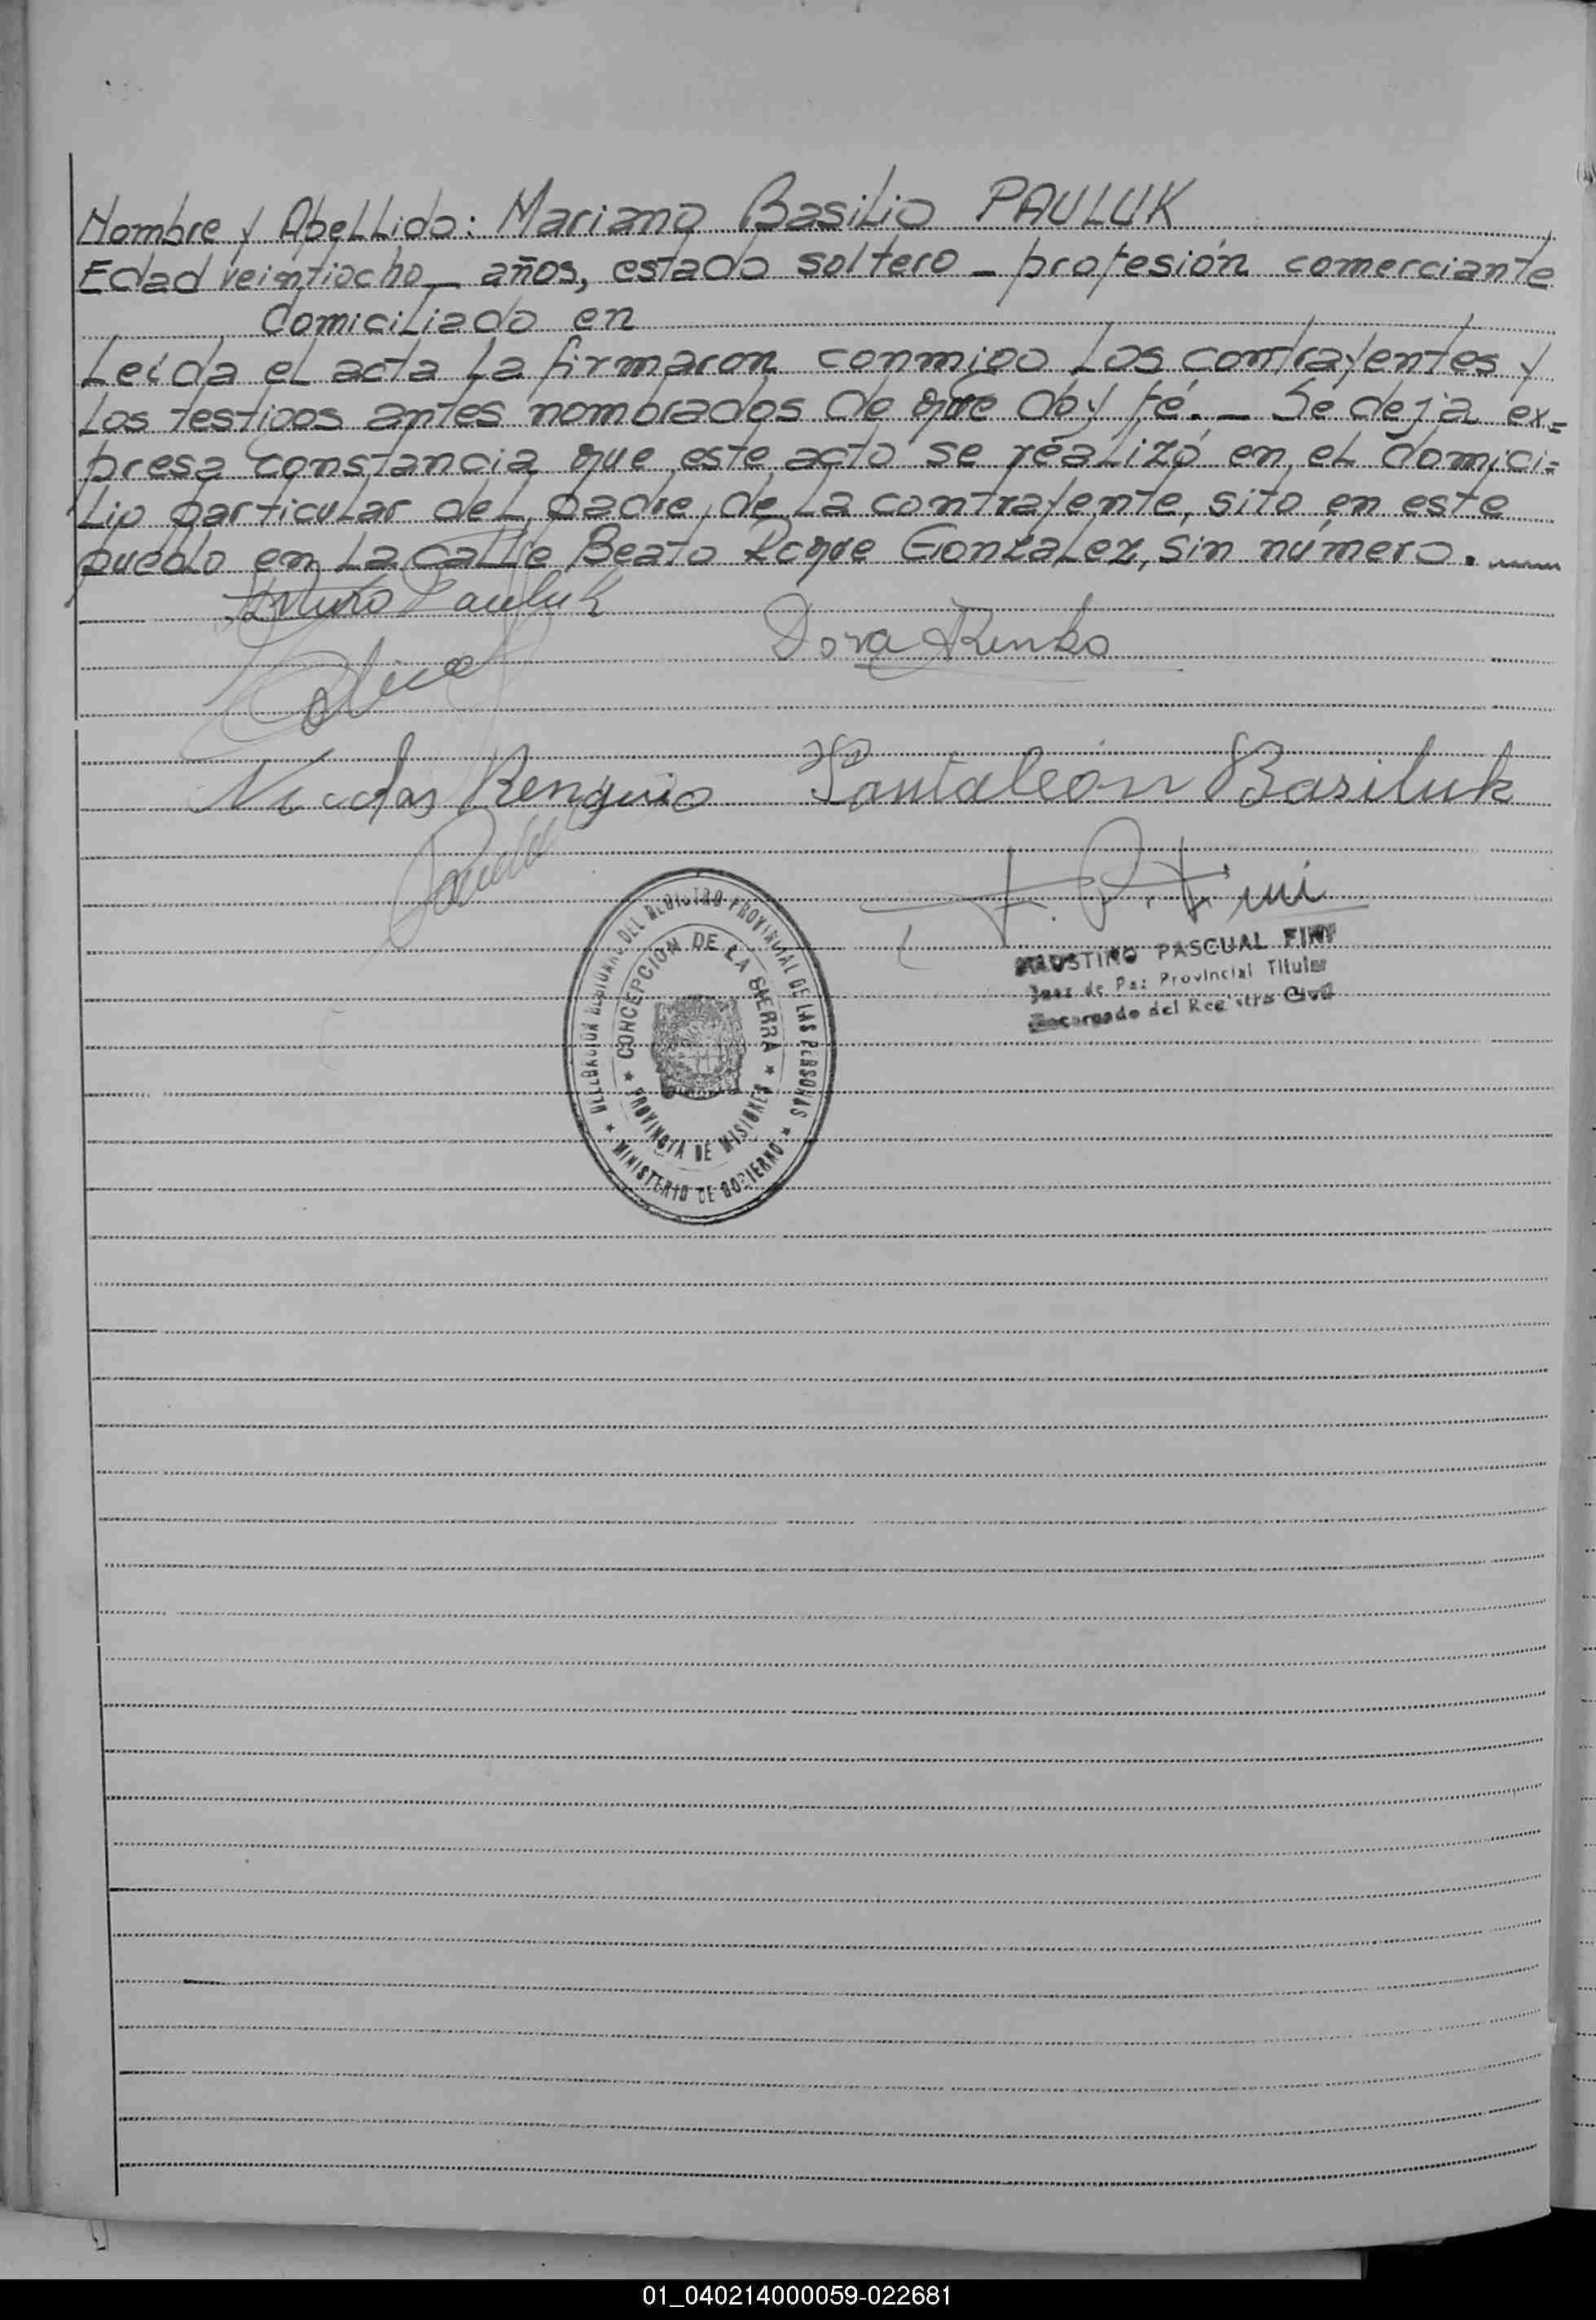 Nombre y Apellido: Mariano Basilio PAULUK
Edad veintiocho — años, estado soltero — profesión comerciante
domiciliado en
Leída el acta la firmaron conmigo los contrayentes y
los testigos antes nombrados de que doy fé. — Se deja ex=
presa constancia que este acto se realizó en el domici=
lio particular del padre de la contrayente, sito en este
pueblo en la calle Beato Roque Gonzalez, sin número.
Arturo Pauluk
Dora Renko
Nicolas Renguio Pantaleón Basiluk
Pauluk
F. P. Fini
FAUSTINO PASCUAL FINI
Juez de Paz Provincial Titular
Encargado del Registro Civil
DELEGACION REGIONAL DEL REGISTRO PROVINCIAL DE LAS PERSONAS
CONCEPCION DE LA SIERRA
PROVINCIA DE MISIONES
MINISTERIO DE GOBIERNO
01_040214000059-022681